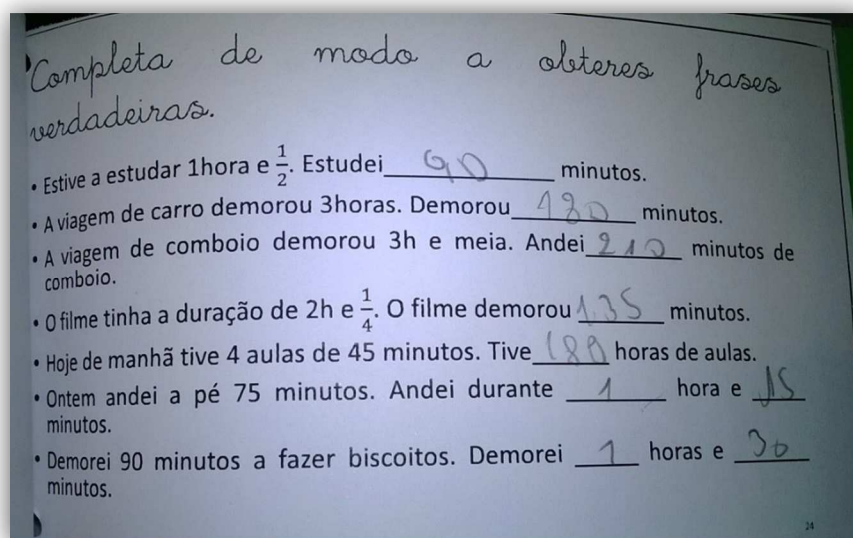 Completa de modo a obteres frases
verdadeiras.
• Estive a estudar 1hora e 1/2. Estudei 90 minutos.
• A viagem de carro demorou 3horas. Demorou 180 minutos.
• A viagem de comboio demorou 3h e meia. Andei 210 minutos de
comboio.
• O filme tinha a duração de 2h e 1/4. O filme demorou 135 minutos.
• Hoje de manhã tive 4 aulas de 45 minutos. Tive 180 horas de aulas.
• Ontem andei a pé 75 minutos. Andei durante 1 hora e 15
minutos.
• Demorei 90 minutos a fazer biscoitos. Demorei 1 horas e 30
minutos.
24